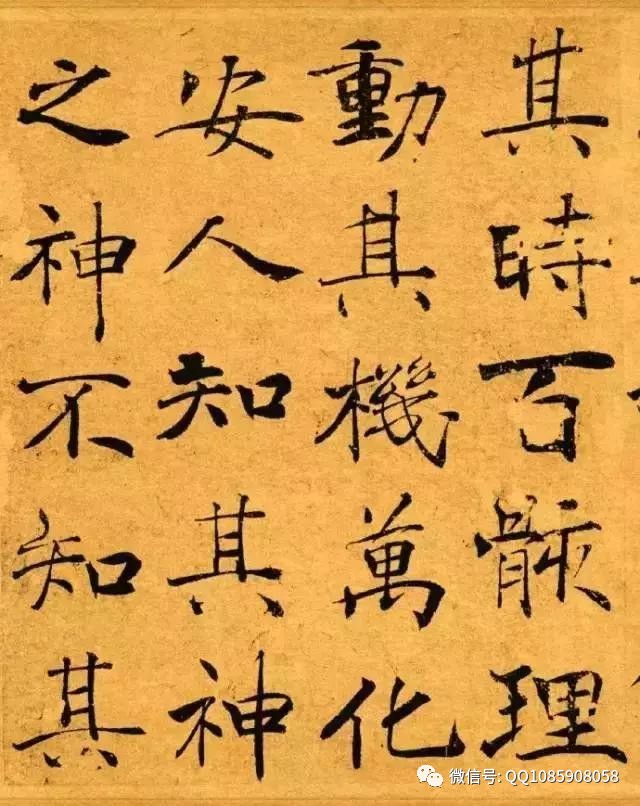 其時百骸理
動其機萬化
安人知其神
之神不知其
微信号: QQ1085908058